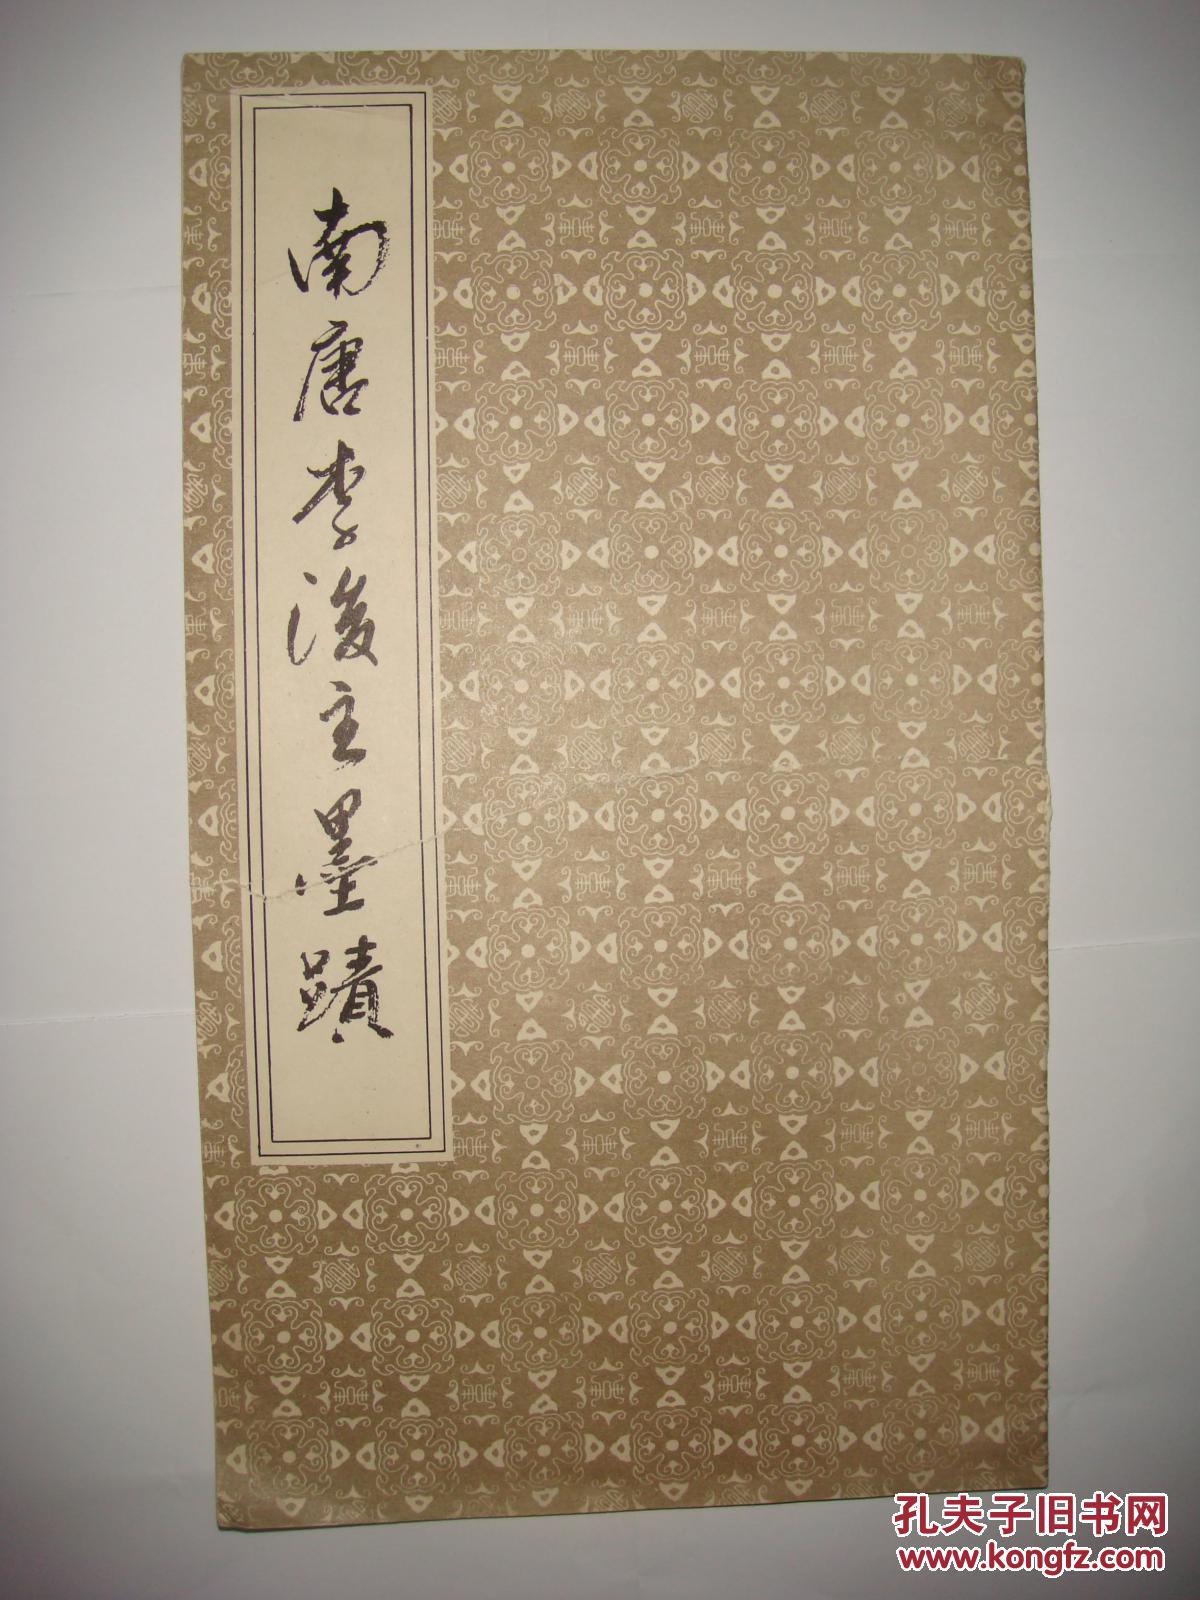 南唐李後主墨蹟
孔夫子旧书网
www.kongfz.com